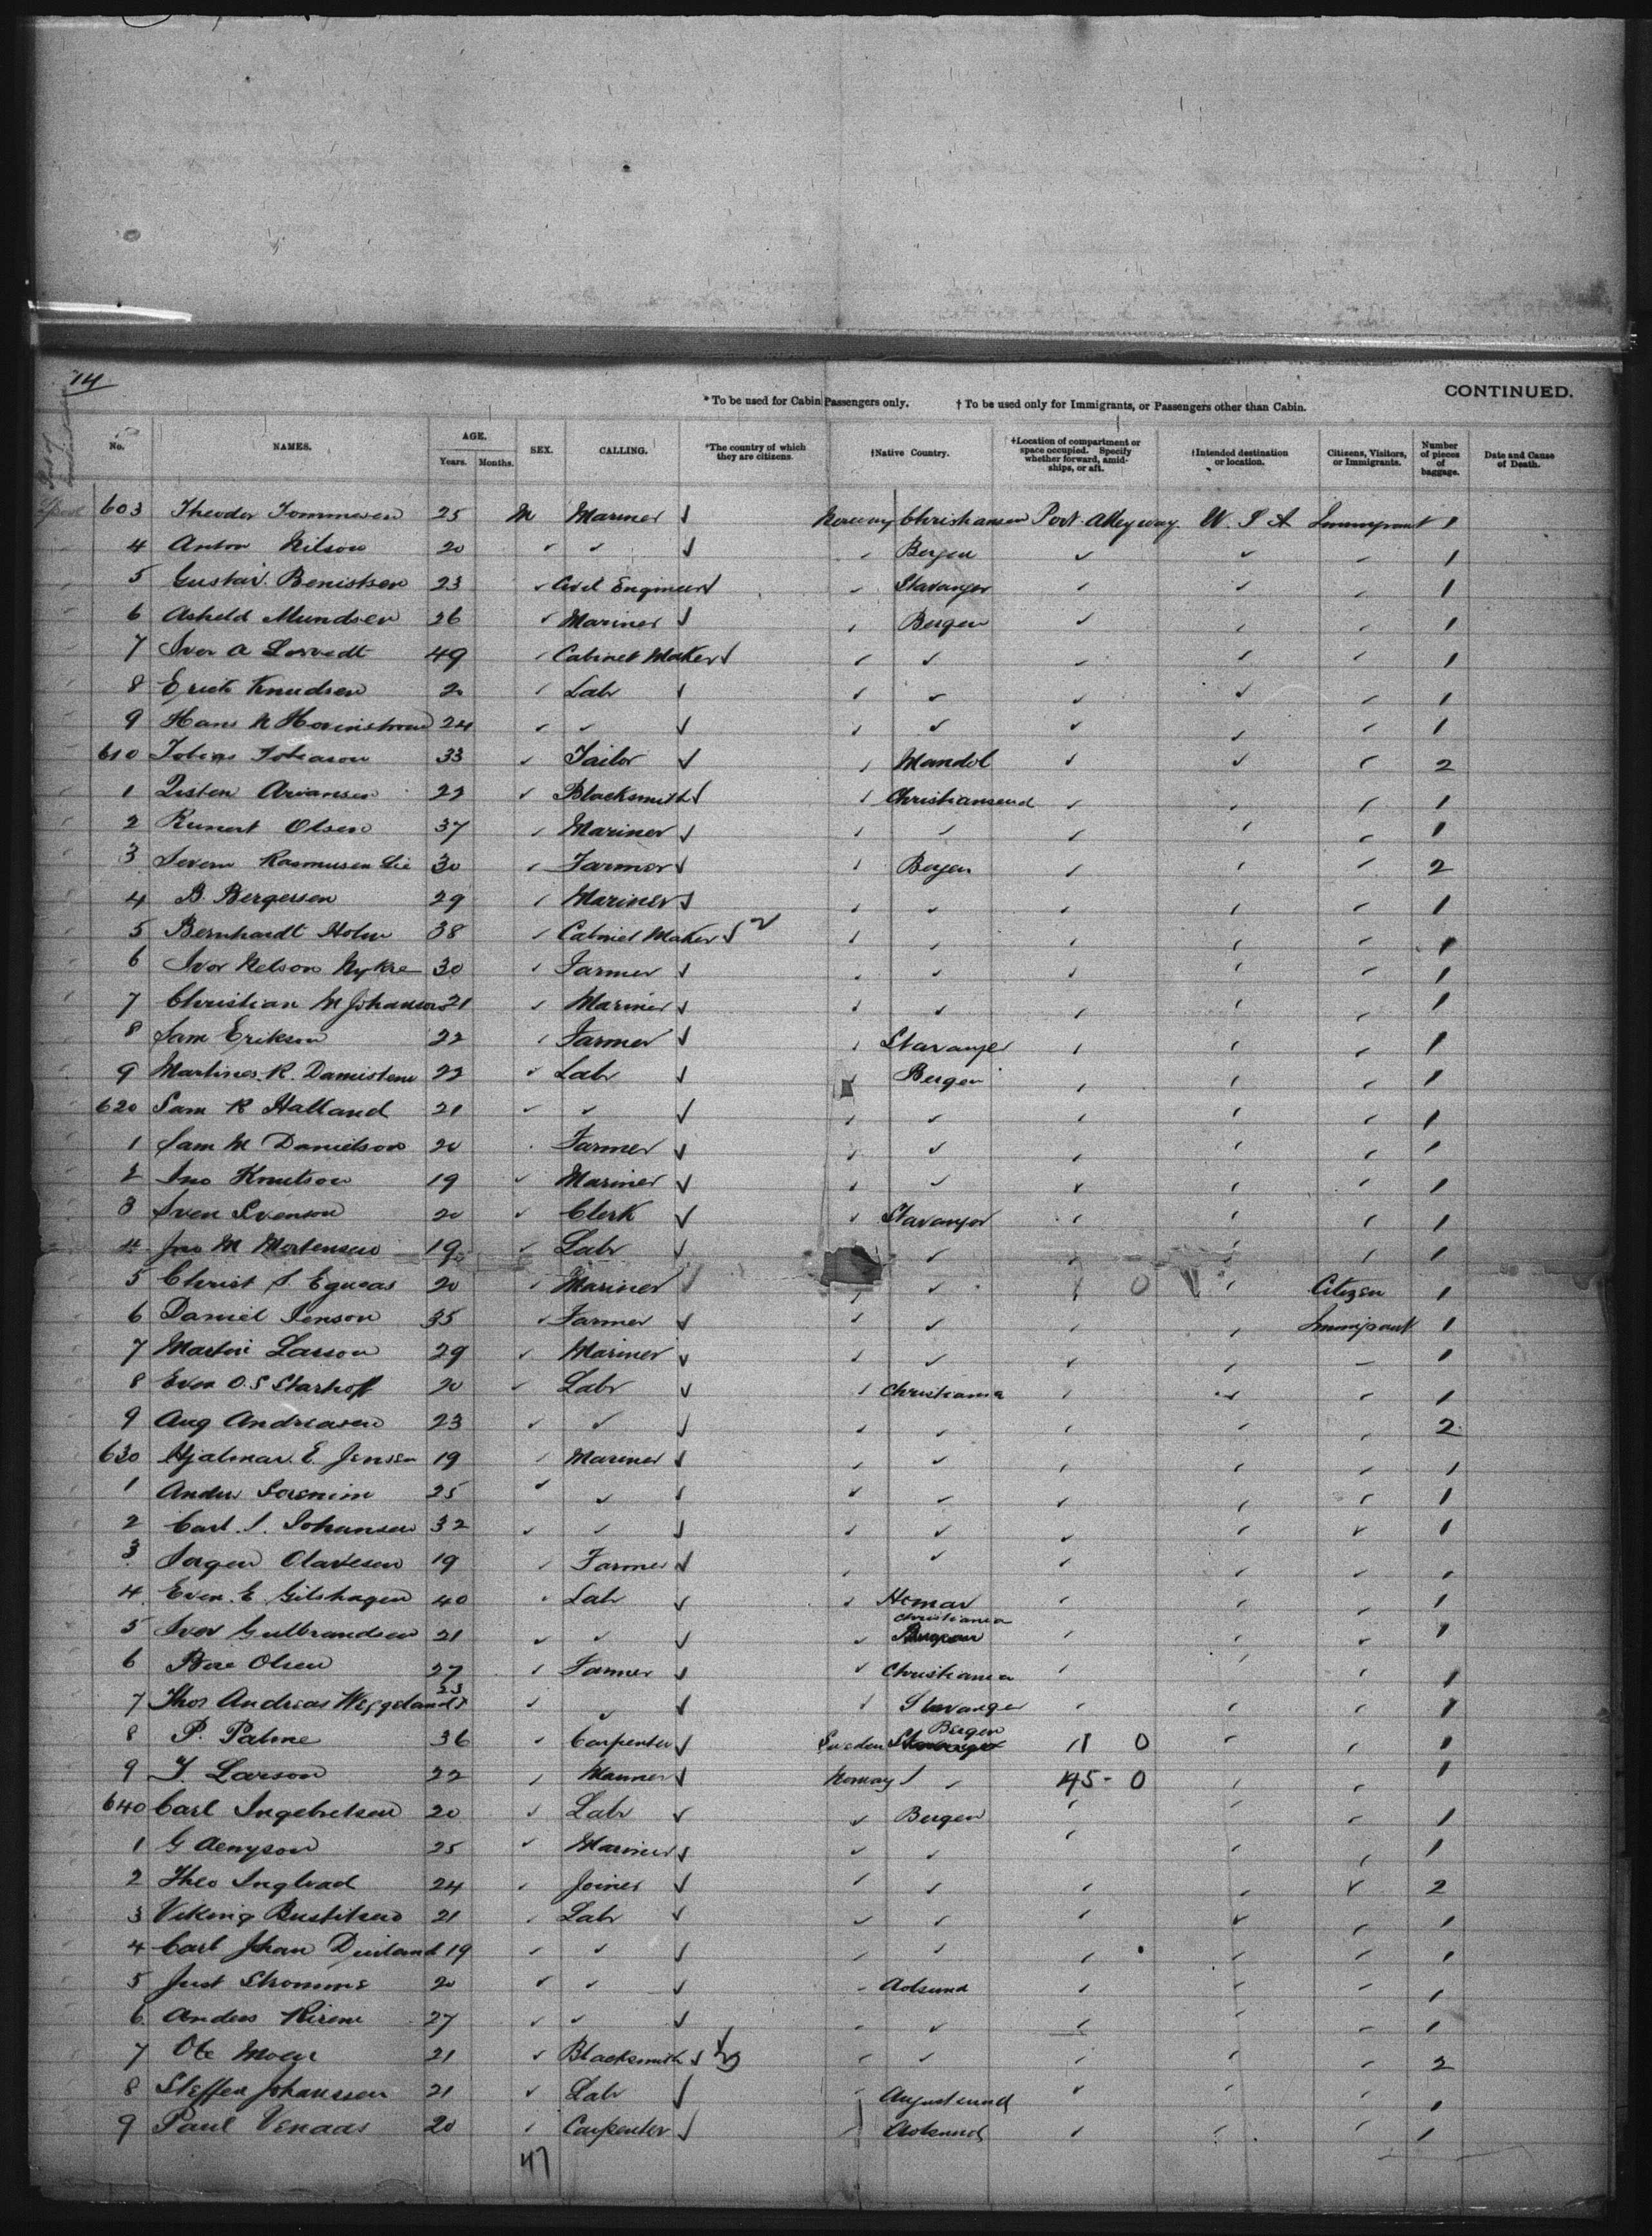 14
CONTINUED.
* To be used for Cabin Passengers only. † To be used only for Immigrants, or Passengers other than Cabin.
No. NAMES. AGE. Years. Months. SEX. CALLING. *The country of which they are citizens. †Native Country. †Location of compartment or space occupied. Specify whether forward, amidships, or aft. †Intended destination or location. Citizens, Visitors, or Immigrants. Number of pieces of baggage. Date and Cause of Death.
603 Theodor Tommesen 25 M Mariner ✓ Norway Christiansen Port Alleyway U. S. A Immigrant 1
4 Anton Nilson 20 ✓ ✓ ✓ ✓ Bergen ✓ ✓ ✓ 1
5 Gustav Benistsen 23 ✓ Civil Engineer ✓ ✓ Stavanger ✓ ✓ ✓ 1
6 Mundsen 26 ✓ Mariner ✓ ✓ Bergen ✓ ✓ ✓ 1
7 Iver A 49 ✓ Cabinet Maker ✓ ✓ ✓ ✓ ✓ ✓ 1
8 Erick Knudsen 20 ✓ Labr ✓ ✓ ✓ ✓ ✓ ✓ 1
9 Hans N 24 ✓ ✓ ✓ ✓ ✓ ✓ ✓ ✓ 1
610 Tobias Tobiason 33 ✓ Tailor ✓ ✓ Mandol ✓ ✓ ✓ 2
1 22 ✓ Blacksmith ✓ ✓ Christiansend ✓ ✓ ✓ 1
2 Runert Olsen 37 ✓ Mariner ✓ ✓ ✓ ✓ ✓ ✓ 1
3 Severn Rasmusen Lie 30 ✓ Farmer ✓ ✓ Bergen ✓ ✓ ✓ 2
4 B. Bergersen 29 ✓ Mariner ✓ ✓ ✓ ✓ ✓ ✓ 1
5 Bernhardt Holm 38 ✓ Cabinet Maker ✓ ✓ ✓ ✓ ✓ ✓ 1
6 Ivor Nelson Nykre 30 ✓ Farmer ✓ ✓ ✓ ✓ ✓ ✓ 1
7 Christian M Johanson 21 ✓ Mariner ✓ ✓ ✓ ✓ ✓ ✓ 1
8 Sam Erikson 22 ✓ Farmer ✓ ✓ Stavanger ✓ ✓ ✓ 1
9 Martines R. 22 ✓ Labr ✓ ✓ Bergen ✓ ✓ ✓ 1
620 Sam R Halland 21 ✓ ✓ ✓ ✓ ✓ ✓ ✓ ✓ 1
1 Sam M Danielson 20 Farmer ✓ ✓ ✓ ✓ ✓ ✓ 1
2 Jno Knutson 19 ✓ Mariner ✓ ✓ ✓ ✓ ✓ ✓ 1
3 Sven Svenson 20 ✓ Clerk ✓ ✓ Stavanger ✓ ✓ ✓ 1
4 Jno M Mortensen 19 ✓ Labr ✓ ✓ ✓ ✓ ✓ 1
5 Christ S. 20 ✓ Mariner ✓ ✓ ✓ ✓ 0 ✓ Citizen 1
6 Daniel Jenson 35 ✓ Farmer ✓ ✓ ✓ ✓ ✓ Immigrant 1
7 Martin Larson 29 ✓ Mariner ✓ ✓ ✓ ✓ ✓ ✓ 1
8 Even O. S Starhoff 20 ✓ Labr ✓ ✓ Christiania ✓ ✓ ✓ 1
9 Aug Andreasen 23 ✓ ✓ ✓ ✓ ✓ ✓ ✓ ✓ 2
630 Hjalmar E. Jensen 19 ✓ Mariner ✓ ✓ ✓ ✓ ✓ ✓ 1
1 Anders 25 ✓ ✓ ✓ ✓ ✓ ✓ ✓ ✓ 1
2 Carl J. Johansen 32 ✓ ✓ ✓ ✓ ✓ ✓ ✓ ✓ 1
3 Jorgen Olavesen 19 ✓ Farmer ✓ ✓ ✓ ✓ ✓ ✓ 1
4 Even E Gilshagen 40 ✓ Labr ✓ ✓ Hamar ✓ ✓ ✓ 1
5 Iver Gulbrandsen 21 ✓ ✓ ✓ ✓ Christiania ✓ ✓ ✓ 1
6 Olsen 27 ✓ Farmer ✓ ✓ Christiania ✓ ✓ ✓ 1
7 Thos Andreas Weggelandt 23 ✓ ✓ ✓ ✓ Stavanger ✓ ✓ ✓ 1
8 P. Palme 36 ✓ Carpenter ✓ Sweden Bergen 11 0 ✓ ✓ 1
9 J. Larson 22 ✓ Mariner ✓ Norway ✓ ✓ 45 - 0 ✓ ✓ 1
640 Carl Ingebretsen 20 ✓ Labr ✓ ✓ Bergen ✓ ✓ ✓ 1
1 G 25 ✓ Mariner ✓ ✓ ✓ ✓ ✓ ✓ 1
2 Theo 24 ✓ Joiner ✓ ✓ ✓ ✓ ✓ ✓ 2
3 Viking 21 ✓ Labr ✓ ✓ ✓ ✓ ✓ ✓ 1
4 Carl Johan 19 ✓ ✓ ✓ ✓ ✓ ✓ ✓ ✓ 1
5 Just Stromme 20 ✓ ✓ ✓ ✓ Aolsund ✓ ✓ ✓ 1
6 Anders 27 ✓ ✓ ✓ ✓ ✓ ✓ ✓ ✓ 1
7 Ole Moen 21 ✓ Blacksmith ✓ ✓ ✓ ✓ ✓ ✓ 2
8 Steffen Johanssen 21 ✓ Labr ✓ ✓ ✓ ✓ ✓ 1
9 Paul Venaas 20 ✓ Carpenter ✓ ✓ Aolsund ✓ ✓ ✓ 1
47